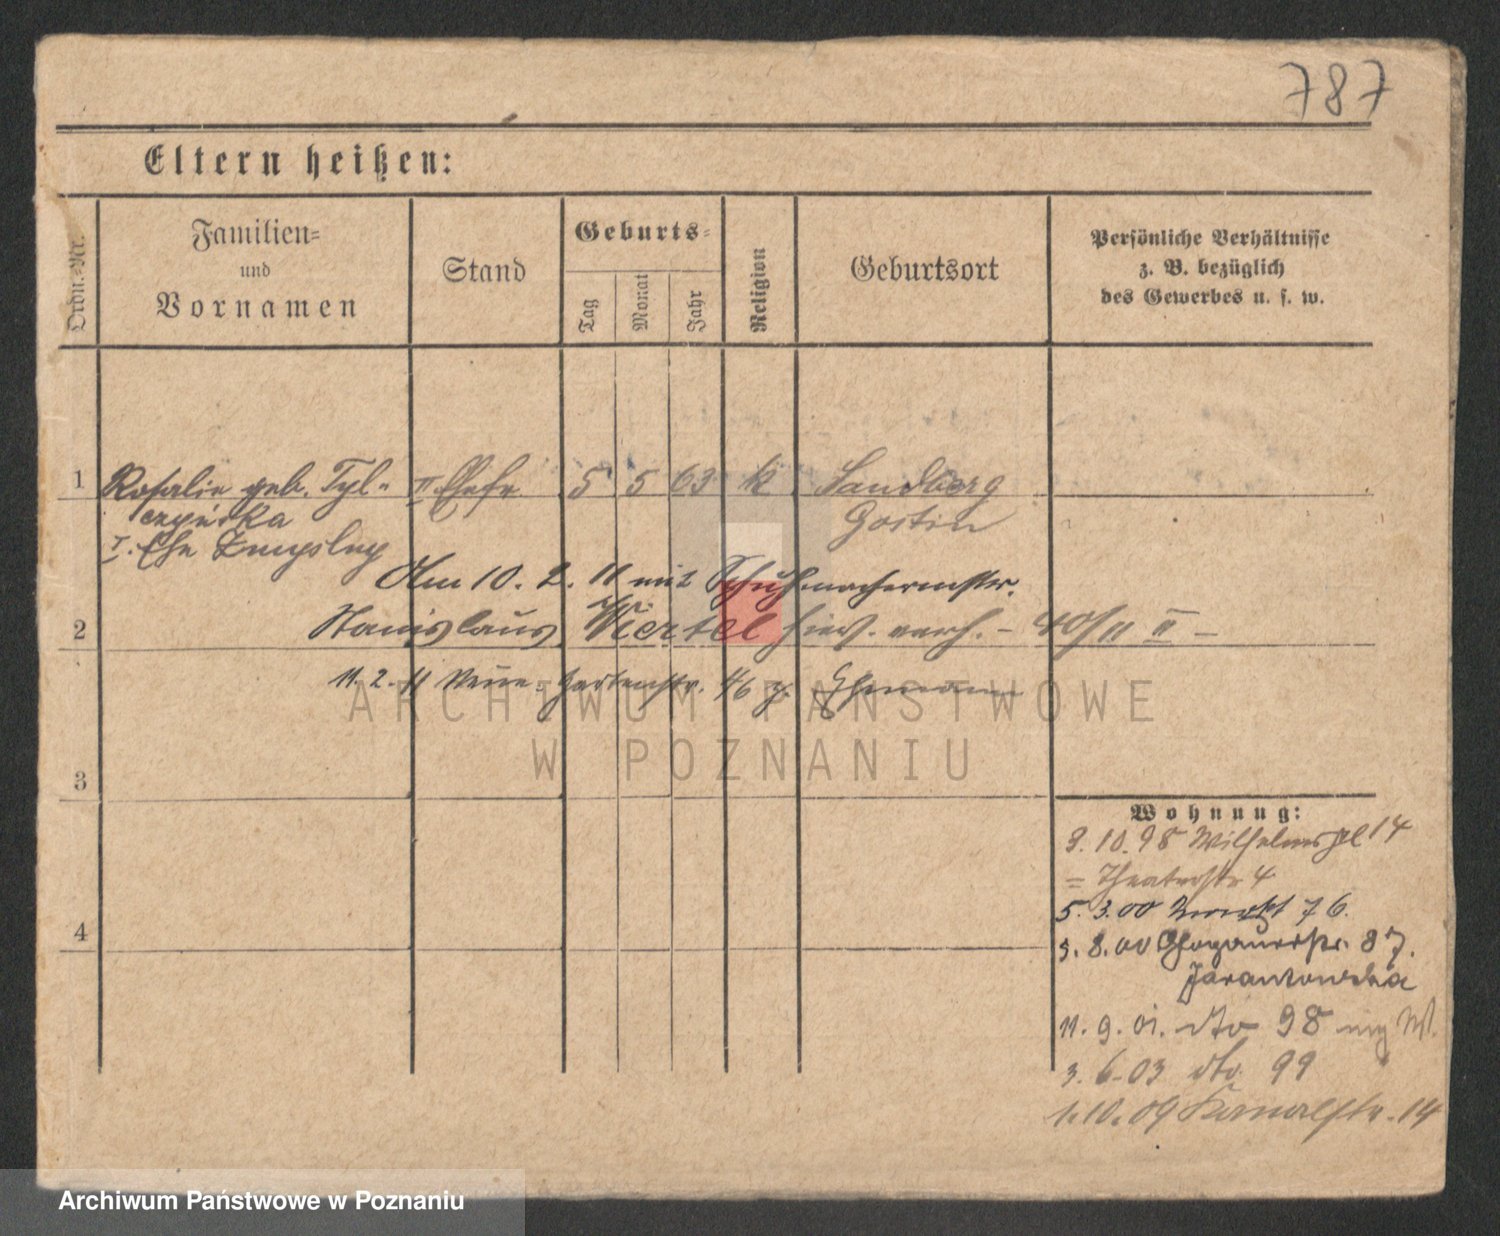 787
Eltern heißen:
Ordn.-Nr.
Familien-
und
Vornamen
Stand
Geburts-
Tag
Monat
Jahr
Religion
Geburtsort
Persönliche Verhältnisse
z. B. bezüglich
des Gewerbes u. s. w.
1 Rosalie geb. Tyl- II Ehefr 5 5 63 k Sandberg
czyńska Gostin
I. Ehe
Am 10. 2. 11 mit Schuhmachermstr.
2 Stanislaus Wiertel hies. verh. - 40/11 II -
11. 2. 11 Neue-Gartenstr. 46 z. Ehemann
ARCHIWUM PAŃSTWOWE
W POZNANIU
3
4
Wohnung:
3. 10. 98 Wilhelmspl 14
= Theaterstr 4
5. 3. 00 76.
3. 8. 00 Glogauerstr. 87.
11. 9. 01. dto 98
3. 6. 03 dto 99
1. 10. 09 Kanalstr. 14
Archiwum Państwowe w Poznaniu